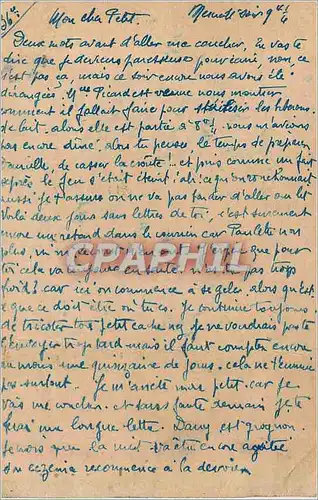 36e
Mon cher Petit. Mercredi soir 9h 1/4
Deux mots avant d'aller me coucher, tu vas te
dire que je deviens paresseuse pour écrire, non, ce
n'est pas ça, mais ce soir encore nous avons été
dérangées. Mme Picard est venue nous montrer
comment il fallait faire pour stériliser les biberons
de lait, alors elle est partie à nous n'avions
pas encore dîné, alors tu penses, le temps de préparer
Danielle, de casser la croûte ! et puis comme un fait
exprès le feu s'était éteint ! ah ! ce qu'on
aussi je t'assure on ne va pas tarder d'aller au lit
Voilà deux jours sans lettres de toi, c'est sûrement
encore un retard dans le courrier car Paulette non
plus, que pour
toi cela va pas trop
froid ? car ici on commence à se geler, alors qu'est
ce que ce doit être où tu es. Je continue toujours
de tricoter ton petit cache nez, Je ne voudrais pas te
l'envoyer trop tard mais il faut compter encore
au moins une quinzaine de jours. cela ne t'ennuie
pas surtout. Je m'arrête mon petit car je
vais me coucher. et sans faute demain je te
ferai une longue lettre. Dany est grognon.
Je crois que la nuit va être encore agitée
Son eczéma recommence à la
CAPHIL